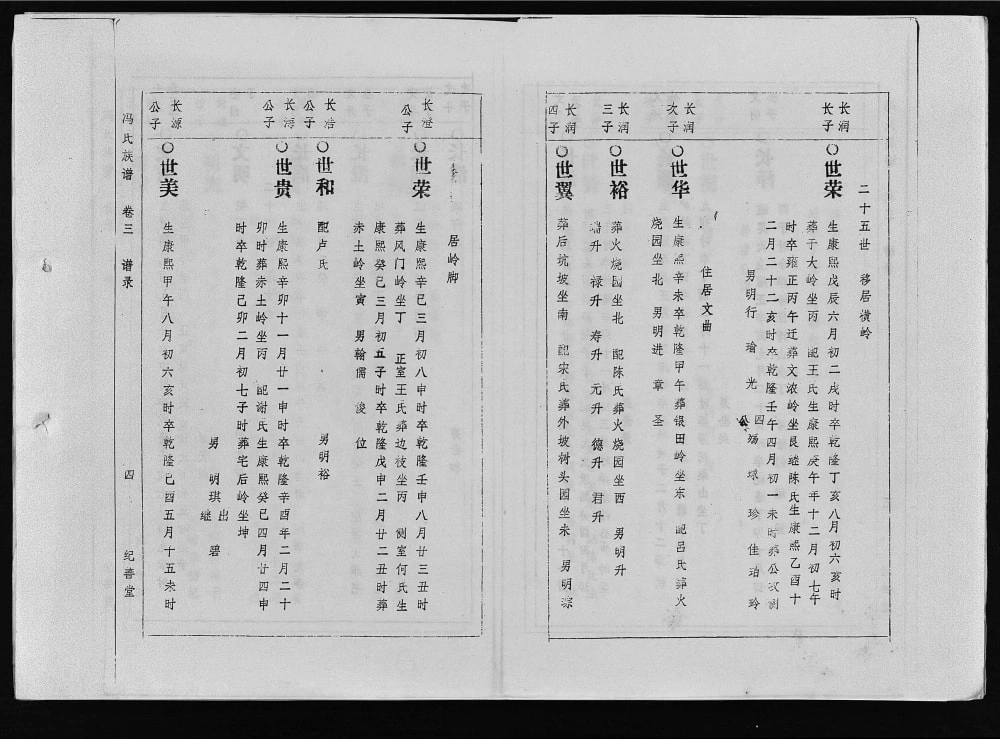 二十五世 移居横岭
长润
长子
○世荣
生康熙戊辰六月初二戌时卒乾隆丁亥八月初六亥时
葬于大岭坐丙 配王氏生康熙庚午年十二月初七午
时卒雍正丙午迁葬文浓岭坐艮继陈氏生康熙乙酉十
二月二十二亥时卒乾隆壬午四月初一未时葬公坟侧
男明行 瑜 光 四 公 球 珍 佳 珀 玲
住居文曲
长润
次子
○世华
生康熙辛未卒乾隆甲午葬银田岭坐东 配吕氏葬火
烧园坐北 男明进 章 圣
长润
三子
○世裕
葬火烧园坐北 配陈氏葬火烧园坐西 男明升
瑞升 禄升 寿升 元升 德升 君升
长润
四子
○世翼
葬后坑坡坐南 配宋氏葬外坡树头园坐未 男明琮
居岭脚
长澄
公子
○世荣
生康熙辛巳三月初八申时卒乾隆壬申八月廿三丑时
葬风门岭坐丁 正室王氏葬边枝坐丙 侧室何氏生
康熙癸巳三月初五子时卒乾隆戊申二月廿二丑时葬
赤土岭坐寅 男翰儒 浚 位
长浩
公子
○世和
配卢氏 男明裕
长海
公子
○世贵
生康熙辛卯十一月廿一申时卒乾隆辛酉年二月二十
卯时葬赤土岭坐丙 配谢氏生康熙癸巳四月廿四申
时卒乾隆己卯二月初七子时葬宅后岭坐坤
男 明琪 出继 碧
长源
公子
○世美
生康熙甲午八月初六亥时卒乾隆己酉五月十五未时
冯氏族谱 卷三 谱录 四 纪善堂